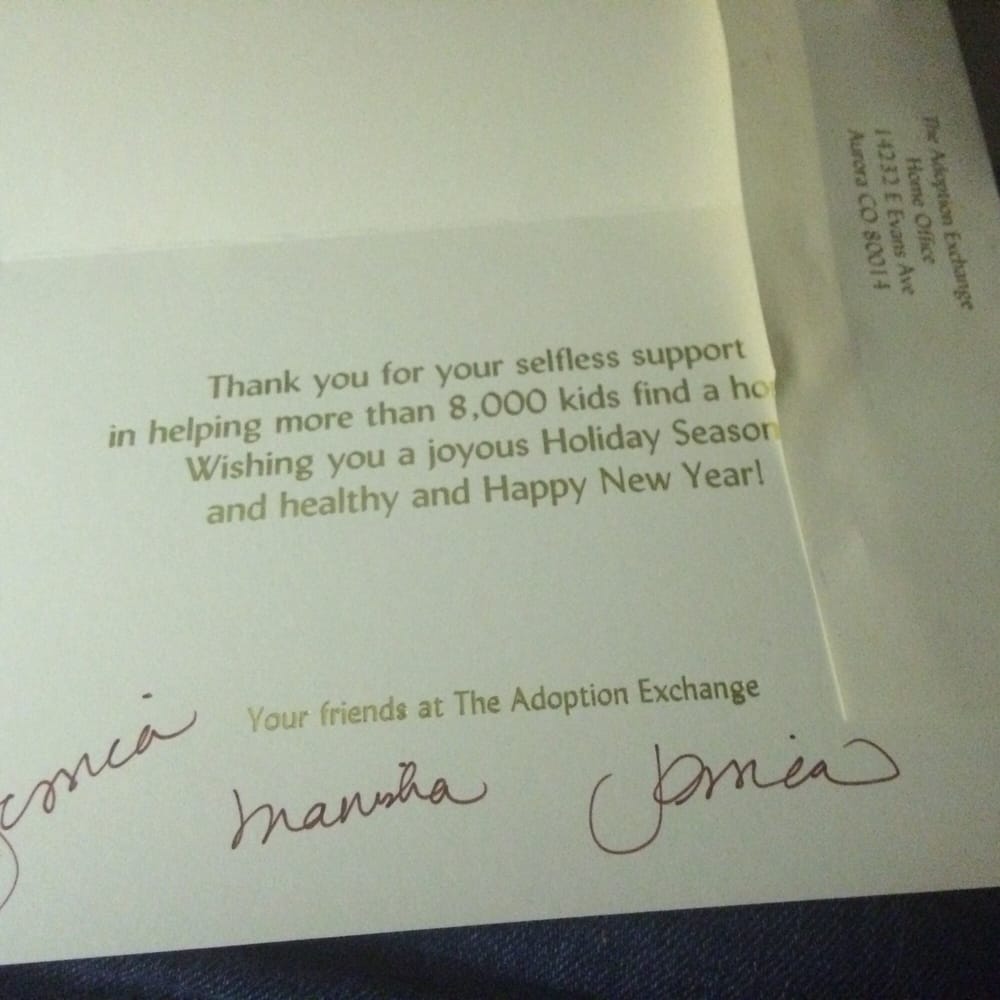 The Adoption Exchange
Home Office
14232 E Evans Ave
Aurora CO 80014
Thank you for your selfless support
in helping more than 8,000 kids find a ho
Wishing you a joyous Holiday Season
and healthy and Happy New Year!
Your friends at The Adoption Exchange
Manisha
Jessica